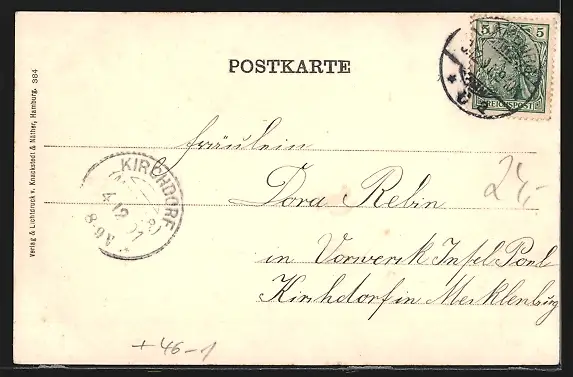 POSTKARTE
5 5
REICHSPOST
Verlag & Lichtdruck v. Knackstedt & Näther, Hamburg. 384
Fräulein
KIRCHDORF
4 12 01
8-9V
Dora Rebin
24,-
in Vorwerk Insel Poel
Kirshdorf in Mecklenburg
+46-1